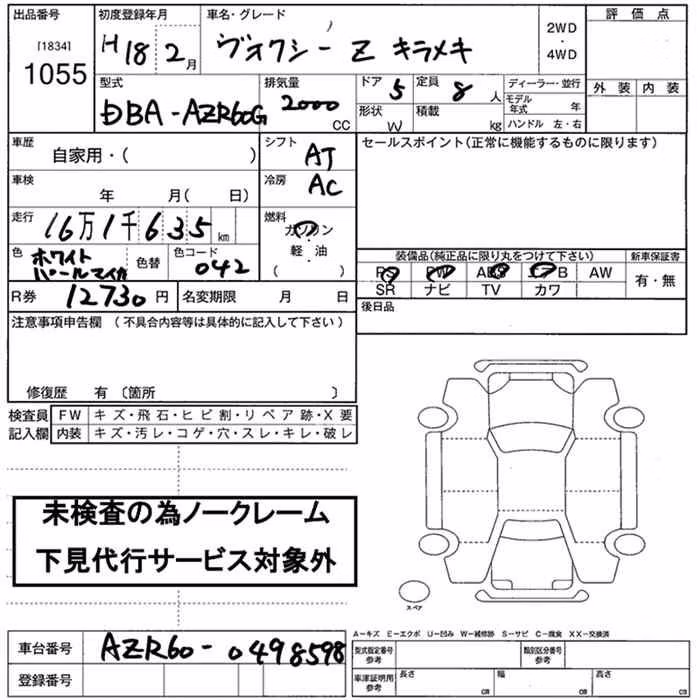 出品番号 初度登録年月 車名・グレード 評価点
[1834]
1055 H18 2月 ヴオクシー Z キラメキ 2WD・4WD
外装 内装
型式 排気量 ドア 5 定員 8人 ディーラー・並行
DBA-AZR60G 2000 CC 形状 W 積載 kg モデル年式 年
ハンドル 左・右
車歴 自家用・( ) シフト AT セールスポイント(正常に機能するものに限ります)
車検 年 月( 日) 冷房 AC
走行 16万1千635km 燃料 ガソリン・軽油( )
色 ホワイトパールマイカ 色替 色コード 042 装備品(純正品に限り丸をつけて下さい) 新車保証書
PS PW ABS エアB AW 有・無
SR ナビ TV カワ
R券 12730円 名変期限 月 日 後日品
注意事項申告欄 (不具合内容等は具体的に記入して下さい)
修復歴 有 〔箇所 〕
検査員 FW キズ・飛石・ヒビ割・リペア跡・X要
記入欄 内装 キズ・汚レ・コゲ・穴・スレ・キレ・破レ
未検査の為ノークレーム
下見代行サービス対象外
スペア
A-キズ E-エクボ U-凹み W-補修跡 S-サビ C-腐食 XX-交換済
車台番号 AZR60-0498598 型式指定番号参考 類別区分番号参考
登録番号 車庫証明用参考 長さ cm 幅 cm 高さ cm